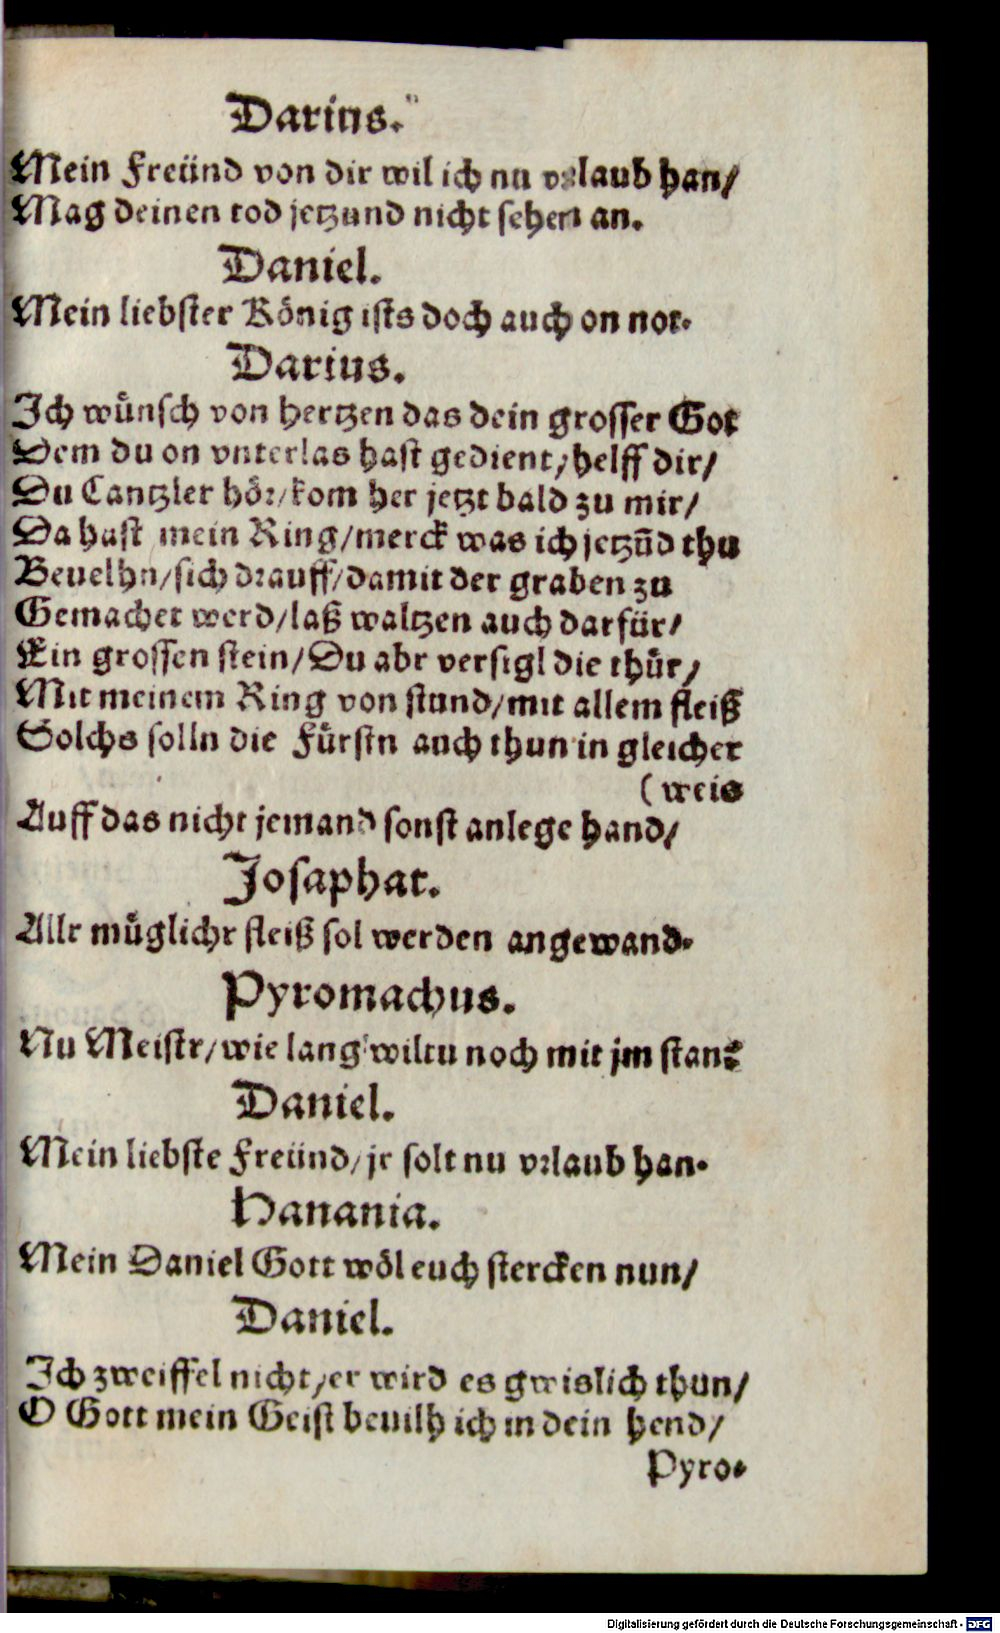 Darius.
Mein Freünd von dir wil ich nu vrlaub han/
Mag deinen tod jetzund nicht sehen an.
Daniel.
Mein liebster König ists doch auch on not.
Darius.
Ich wünsch von hertzen das dein grosser Got
Dem du on vnterlas hast gedient/helff dir/
Du Cantzler hör/kom her jetzt bald zu mir/
Da hast mein Ring/merck was ich jetzūd thu
Beuelhn/sich drauff/damit der graben zu
Gemachet werd/laß waltzen auch darfür/
Ein grossen stein/Du abr versigl die thür/
Mit meinem Ring von stund/mit allem fleiß
Solchs solln die Fürstn auch thun in gleicher
(weis
Auff das nicht jemand sonst anlege hand/
Josaphat.
Allr müglichr fleiß sol werden angewand.
Pyromachus.
Nu Meistr/wie lang wiltu noch mit jm stan?
Daniel.
Mein liebste Freünd/jr solt nu vrlaub han.
Hanania.
Mein Daniel Gott wöl euch stercken nun/
Daniel.
Ich zweiffel nicht/er wird es gwislich thun/
O Gott mein Geist beuilh ich in dein hend/
Pyro-
Digitalisierung gefördert durch die Deutsche Forschungsgemeinschaft - DFG